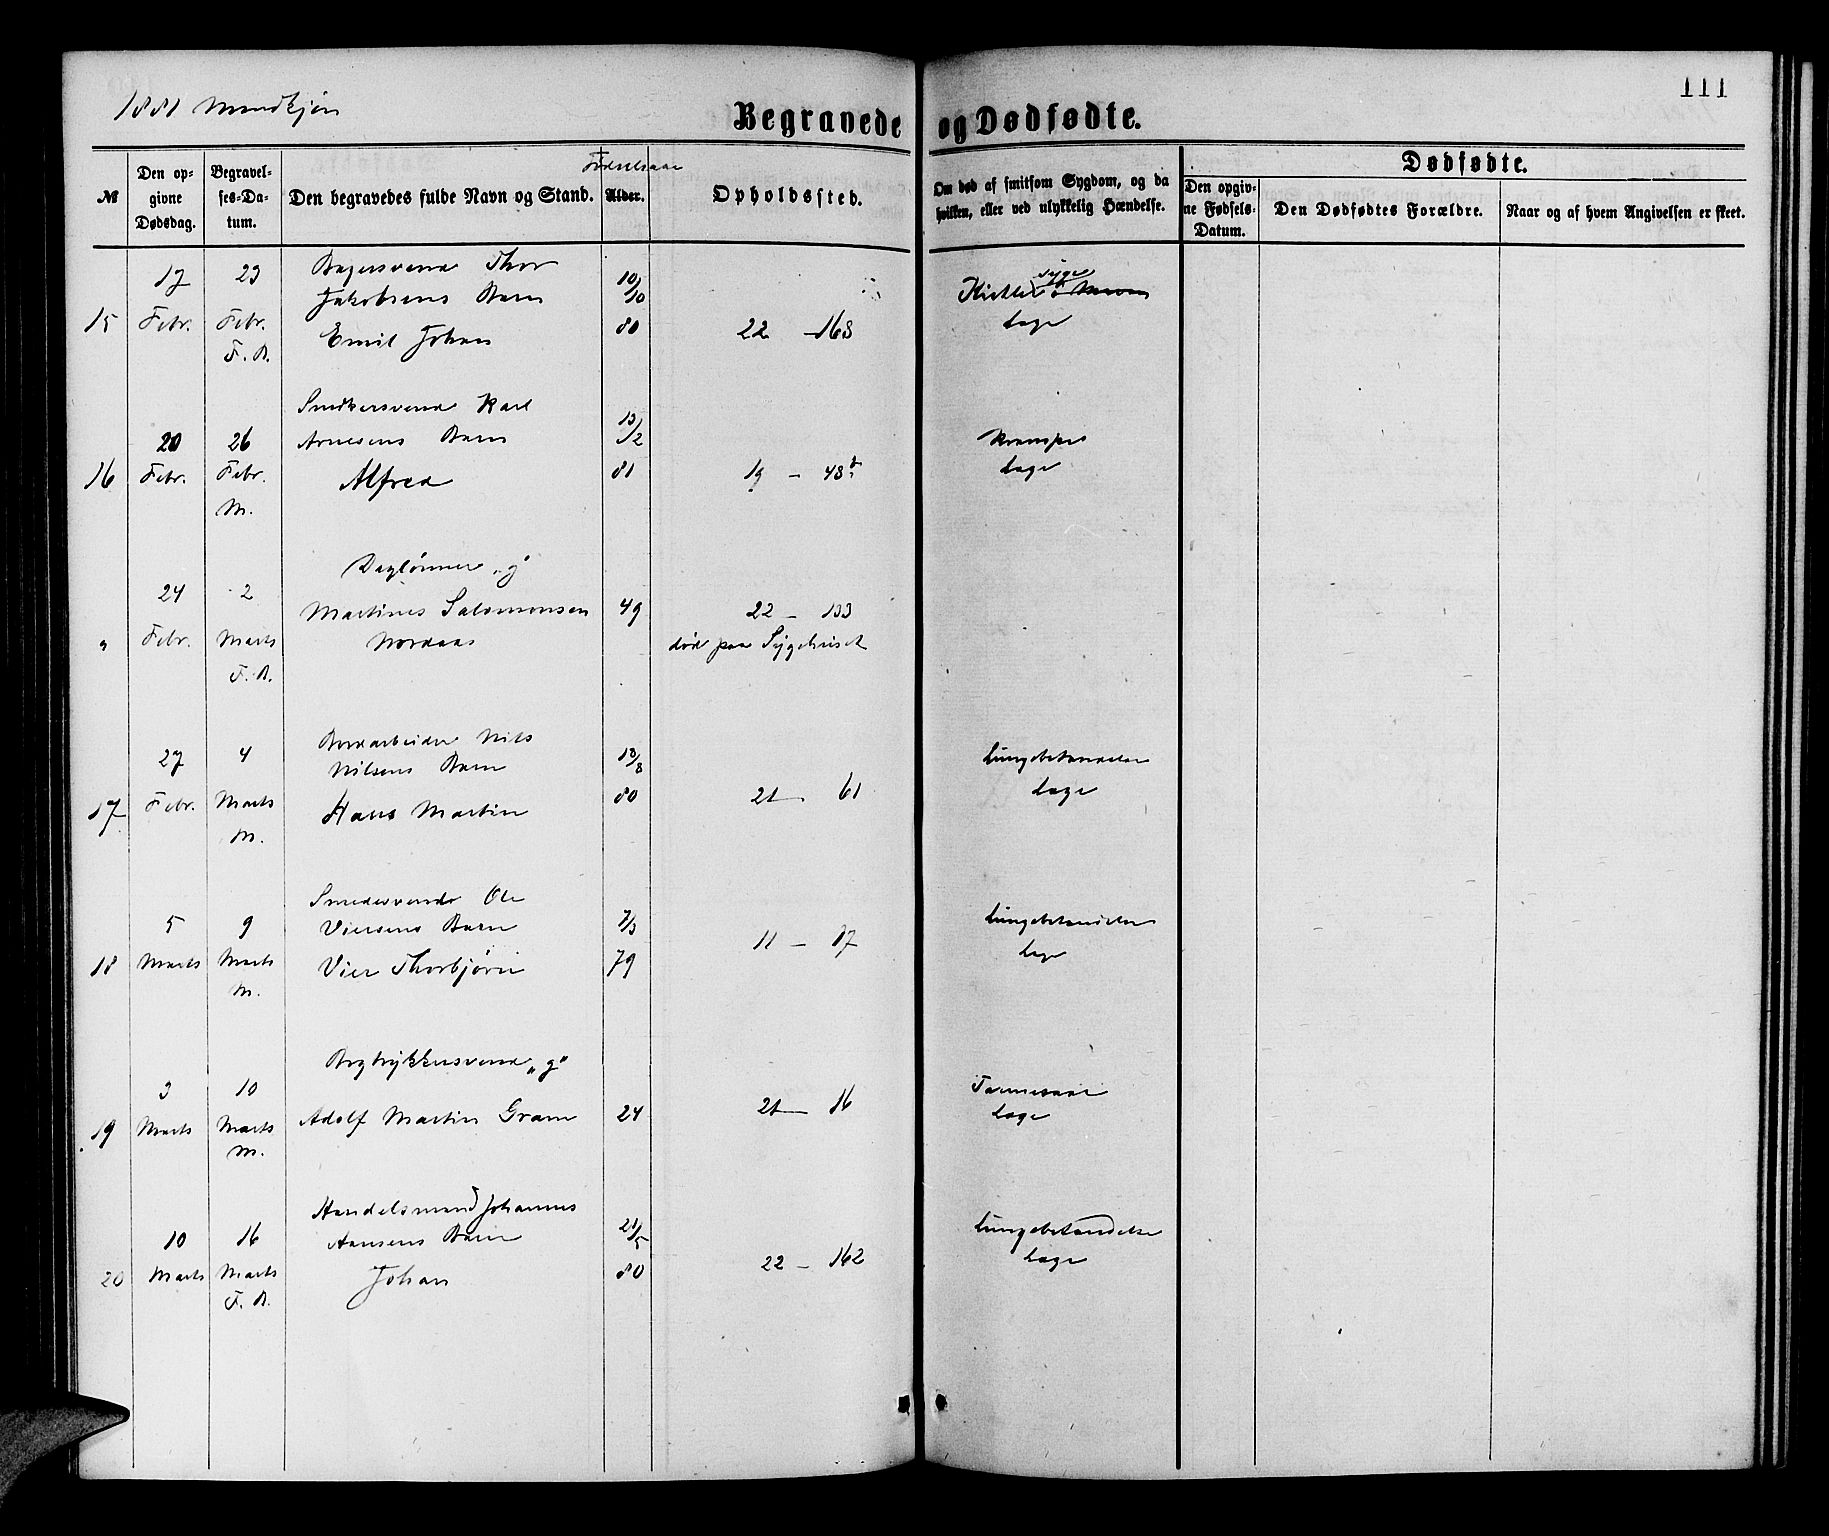 111
1881 Mandkjøn
Begravede og Dødfødte.
№
Den op-
givne
Dødsdag.
Begravel-
ses-Da-
tum.
Den begravedes fulde Navn og Stand.
Fødselsaar
Alder.
Opholdssted.
Om død af smitsom Sygdom, og da
hvilken, eller ved ulykkelig Hændelse.
Dødfødte.
Den opgiv-
ne Fødsels-
Datum.
Den Dødfødtes Forældre.
Naar og af hvem Angivelsen er skeet.
15
17
Febr.
23
Febr.
F. B.
Bagersvend Thor
Jakobsens Barn
Emil Johan
10/10
80
22 - 168
Kirtelsyge
Læge
16
20
Febr.
26
Febr.
M.
Snedkersvend Karl
Arnesens Barn
Alfred
13/2
81
19 - 48b
Krampe
Læge
"
24
Febr.
2
Marts
F. B.
Daglønner "g"
Martines Salomonsen
Nordaas
49
22 - 133
død paa Sygehuset
17
27
Febr.
4
Marts
M.
Bordarbeider Nils
Nilsens Barn
Hans Martin
13/8
80
21 - 61
Lungebetændelse
Læge
18
5
Marts
9
Marts
M.
Smedesvend Ole
Viersens Barn
Vier Thorbjørn
7/3
79
11 - 17
Lungebetændelse
Læge
19
3
Marts
10
Marts
M.
Bogtrykkersvend "g"
Adolf Martin Gram
24
21 - 16
Læge
20
10
Marts
16
Marts
F. B.
Handelsmand Johannes
Hansens Barn
Johan
21/5
80
22 - 162
Lungebetændelse
Læge